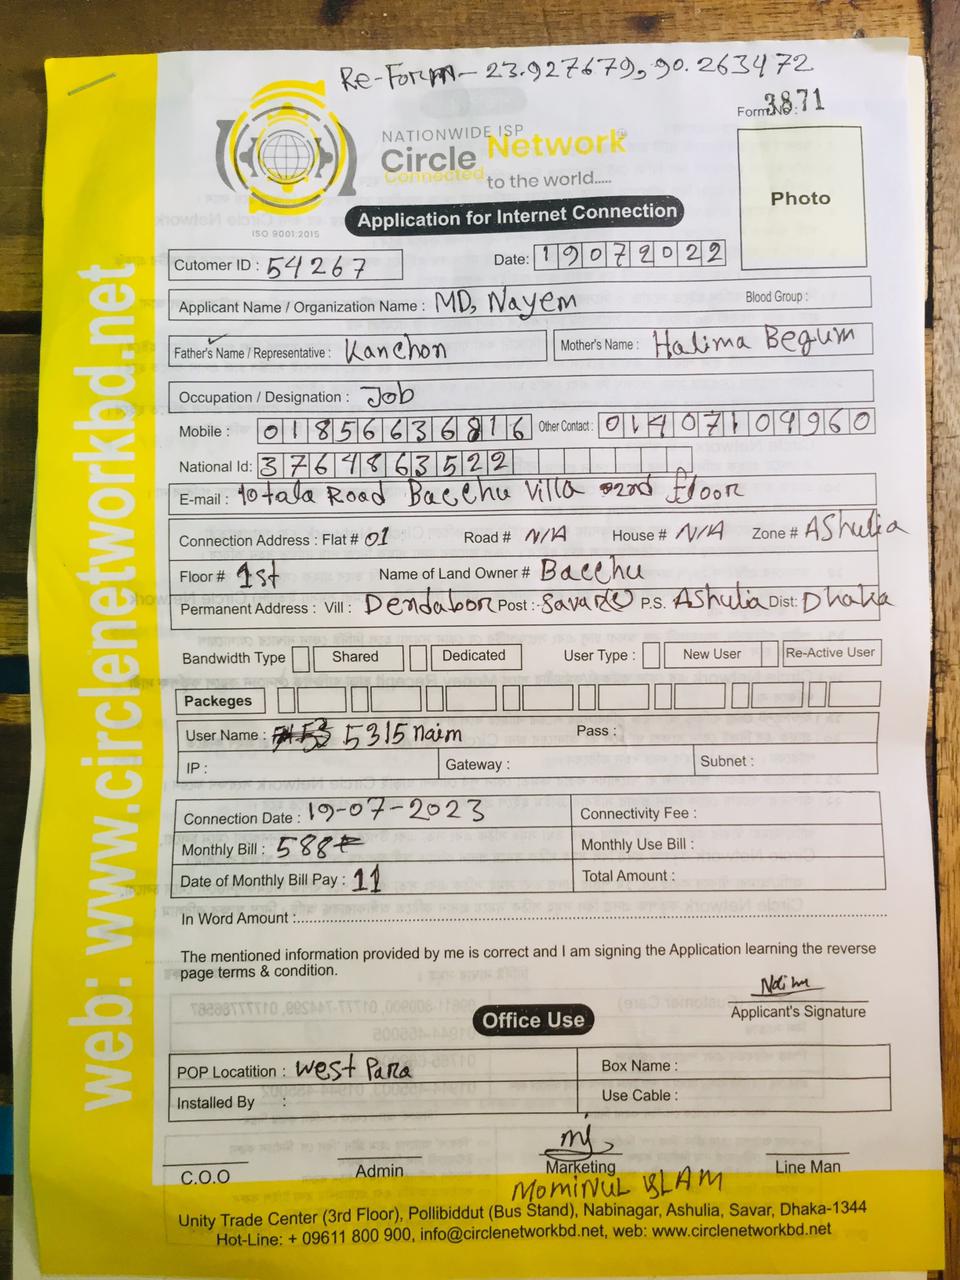 Re-Form - 23.927679, 90.263472
Form No : 3871
NATIONWIDE ISP
Circle Network
Connected to the world.....
ISO 9001:2015
Photo
Application for Internet Connection
Cutomer ID : 54267
Date: 19072022
Applicant Name / Organization Name : MD, Nayem
Blood Group :
Father's Name / Representative : Kanchon
Mother's Name : Halima Begum
Occupation / Designation : Job
Mobile : 01856636816 Other Contact : 01407109960
National Id: 3764863522
E-mail : 10 tala Road Bacchu Villa 2nd floor
Connection Address : Flat # 01 Road # N/A House # N/A Zone # AShulia
Floor # 1st Name of Land Owner # Bacchu
Permanent Address : Vill : Dendabor Post :- Savar P.S. AShulia Dist: Dhaka
Bandwidth Type Shared Dedicated User Type : New User Re-Active User
Packeges
User Name : 5315 naim Pass :
IP : Gateway : Subnet :
Connection Date : 19-07-2023 Connectivity Fee :
Monthly Bill : 588 Monthly Use Bill :
Date of Monthly Bill Pay : 11 Total Amount :
In Word Amount :
The mentioned information provided by me is correct and I am signing the Application learning the reverse
page terms & condition.
Applicant's Signature
Office Use
POP Locatition : West Para Box Name :
Installed By : Use Cable :
C.O.O Admin Marketing Line Man
MOMINUL ISLAM
Unity Trade Center (3rd Floor), Pollibiddut (Bus Stand), Nabinagar, Ashulia, Savar, Dhaka-1344
Hot-Line: + 09611 800 900, info@circlenetworkbd.net, web: www.circlenetworkbd.net
web: www.circlenetworkbd.net